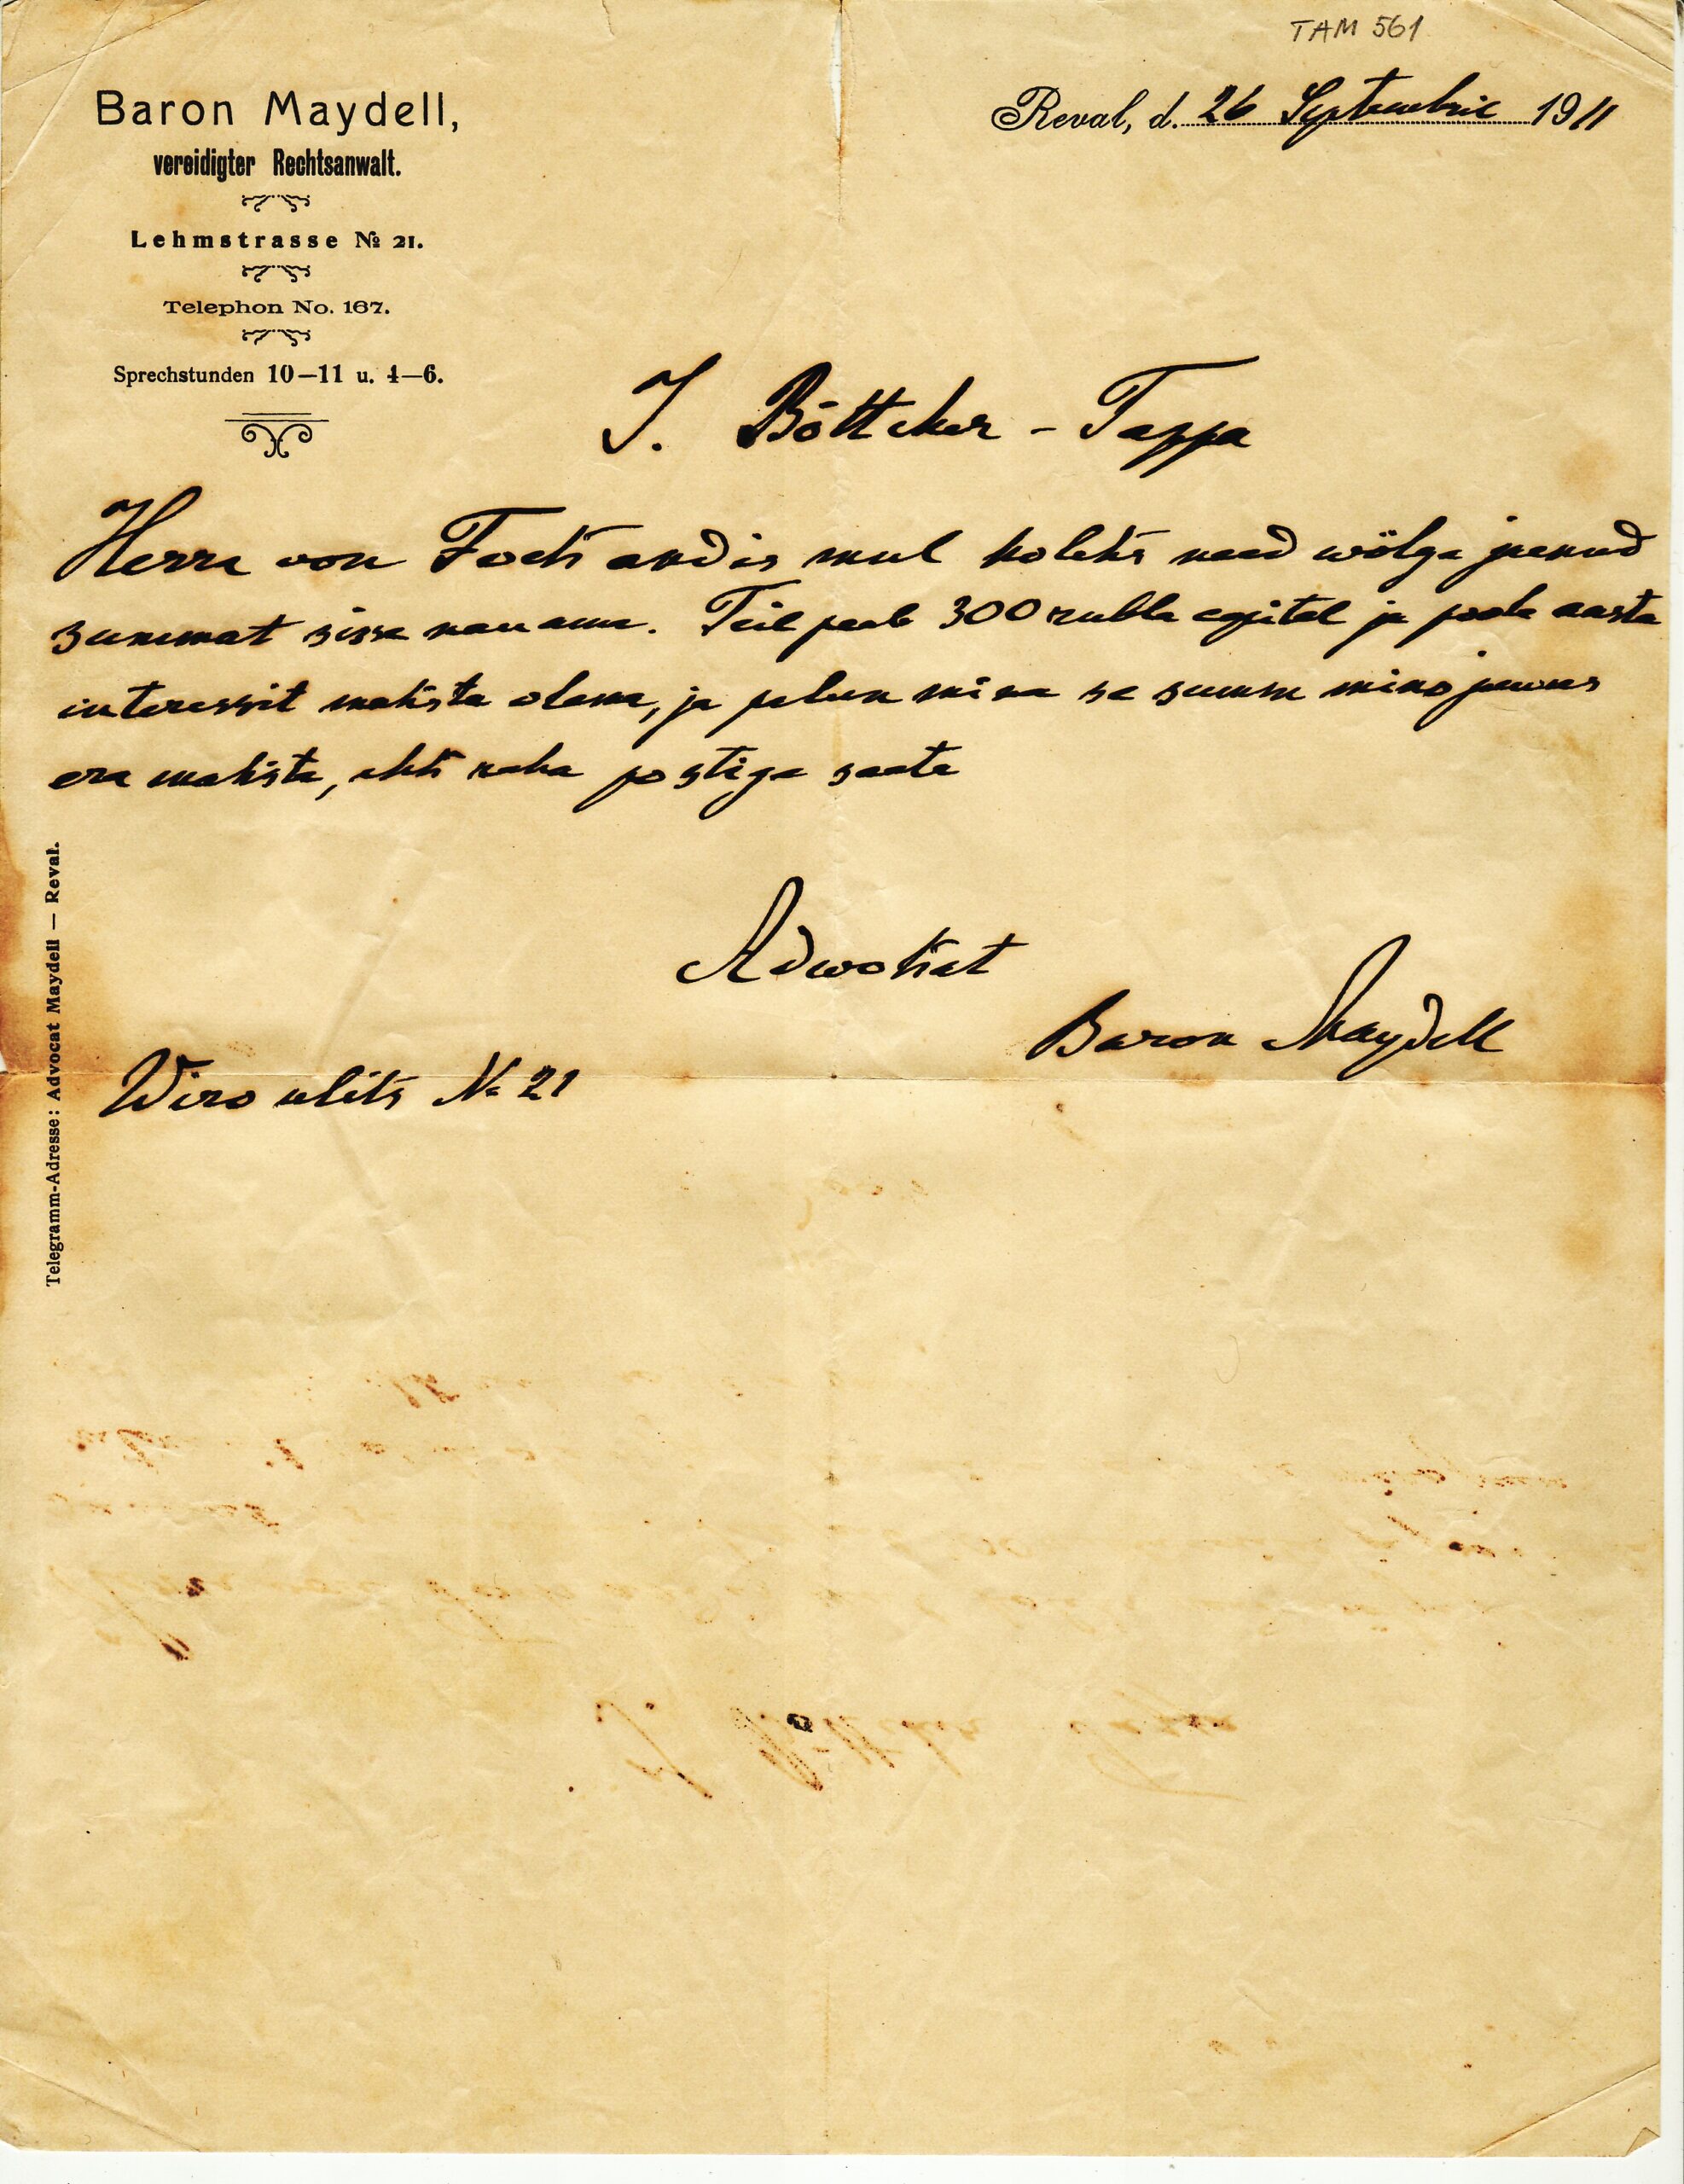 TAM 561
Baron Maydell,
vereidigter Rechtsanwalt.
Lehmstrasse № 21.
Telephon No. 167.
Sprechstunden 10—11 u. 4—6.
Reval, d. 26 Septembril 1911
J. Böttcher - Tappa
Herra von Fock andis mul koleks need wölga jeenud
summat sisse nauama. Teil peab 300 rubla capital ja poole aasta
interessit maksta olema, ja palun mina se summa mino juures
era maksta, ehk raha postiga saata
Adwokat
Baron Maydell
Wiro ulits № 21
Telegramm-Adresse: Advocat Maydell — Reval.